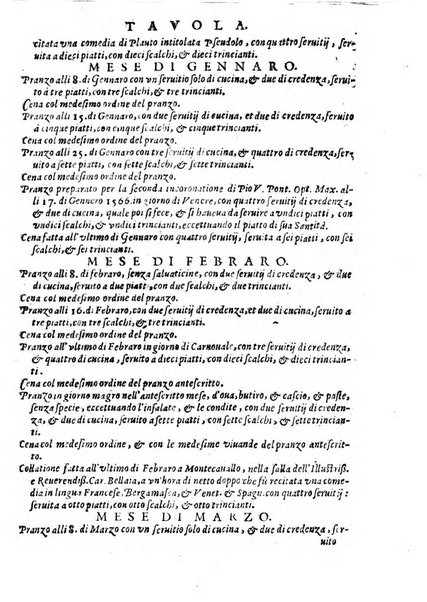 TAVOLA.
citata una comedia di Plauto intitolata Pseudolo, con quattro seruitij, ser-
uita a dieci piatti, con dieci scalchi, & dieci trincianti.
MESE DI GENNARO.
Pranzo alli 8. di Gennaro con vn seruitio solo di cucina, & due di credenza, serui-
to à tre piatti, con tre scalchi, & tre trincianti.
Cena col medesimo ordine del pranzo.
Pranzo alli 15. di Gennaro, con due seruitij di cucina, et due di credenza, seruito
à cinque piatti, con cinque scalchi, & cinque trincianti.
Cena col medesimo ordine del pranzo.
Pranzo alli 25. di Gennaro con tre seruitij di cucina, & quattro di credenza, ser-
uito a sette piatti, con sette scalchi, & sette trincianti.
Cena col medesimo ordine del pranzo.
Pranzo preparato per la seconda incoronatione di Pio V. Pont. Opt. Max. al-
li 17. di Gennero 1566. in giorno di Venere, con quattro seruitij di credenza,
& due di cucina, quale poi si fece, & si haueua da seruire a vndici piatti, con
vndici scalchi, & vndici trincianti, eccettuando il piatto di sua Santità.
Cena fatta all'vltimo di Gennaro con quattro seruitij, seruita a sei piatti, con sei
scalchi, & sei trincianti.
MESE DI FEBRARO.
Pranzo alli 8. di febraro, senza saluaticine, con due seruitij di credenza, & due
di cucina, seruito a due piatti, con due scalchi, & due trincianti.
Cena col medesimo ordine del pranzo.
Pranzo alli 16. di Febraro, con due seruitij di credenza, et due di cucina, seruito a
tre piatti, con tre scalchi, & tre trincianti.
Cena col medesimo ordine del pranzo.
Pranzo all'vltimo di Febraro in giorno di Carnouale, con tre seruitij di credenza,
& quattro di cucina, seruito a dieci piatti, con dieci scalchi, & dieci trincian-
ti.
Cena col medesimo ordine del pranzo antescritto.
Pranzo in giorno magro nell'antescritto mese, d'oua, butiro, & cascio, & paste,
senza specie, eccettuando l'insalate, & le condite, con due seruitij di creden-
za, & due di cucina, seruito a sette piatti, con sette scalchi, & sette trincian-
ti.
Cena col medesimo ordine, & con le medesime viuande del pranzo antescrit-
to.
Collatione fatta all'vltimo di Febraro a Montecauallo, nella salla dell'Illustriß.
& Reuerendiß. Car. Bellaia, a vn'hora di netto doppo che fu recitata una come-
dia in lingua Francese, Bergamasca, & Venet. & Spagn. con quattro seruitij:
seruita a otto piatti, con otto scalchi, & otto trincianti.
MESE DI MARZO.
Pranzo alli 8. di Marzo con vn seruitio solo di cucina, & due di credenza, ser-
uito